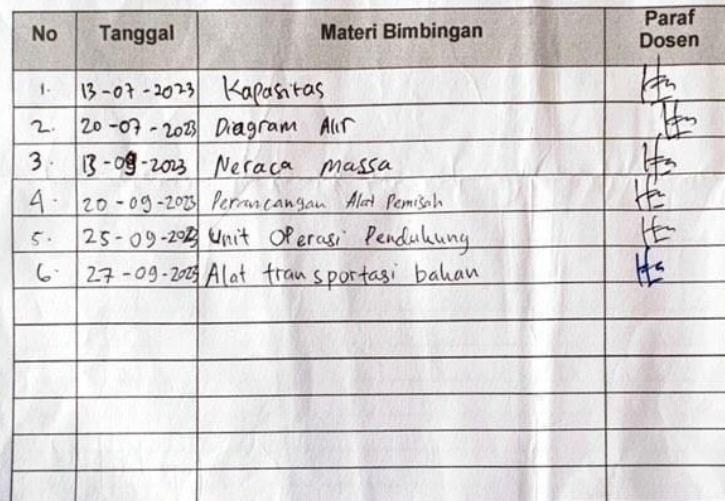 No Tanggal Materi Bimbingan Paraf Dosen
1. 13-07-2023 Kapasitas
2. 20-07-2023 Diagram Alir
3. 13-09-2023 Neraca massa
4. 20-09-2023 Perancangan Alat Pemisah
5. 25-09-2023 Unit Operasi Pendukung
6. 27-09-2023 Alat transportasi bahan